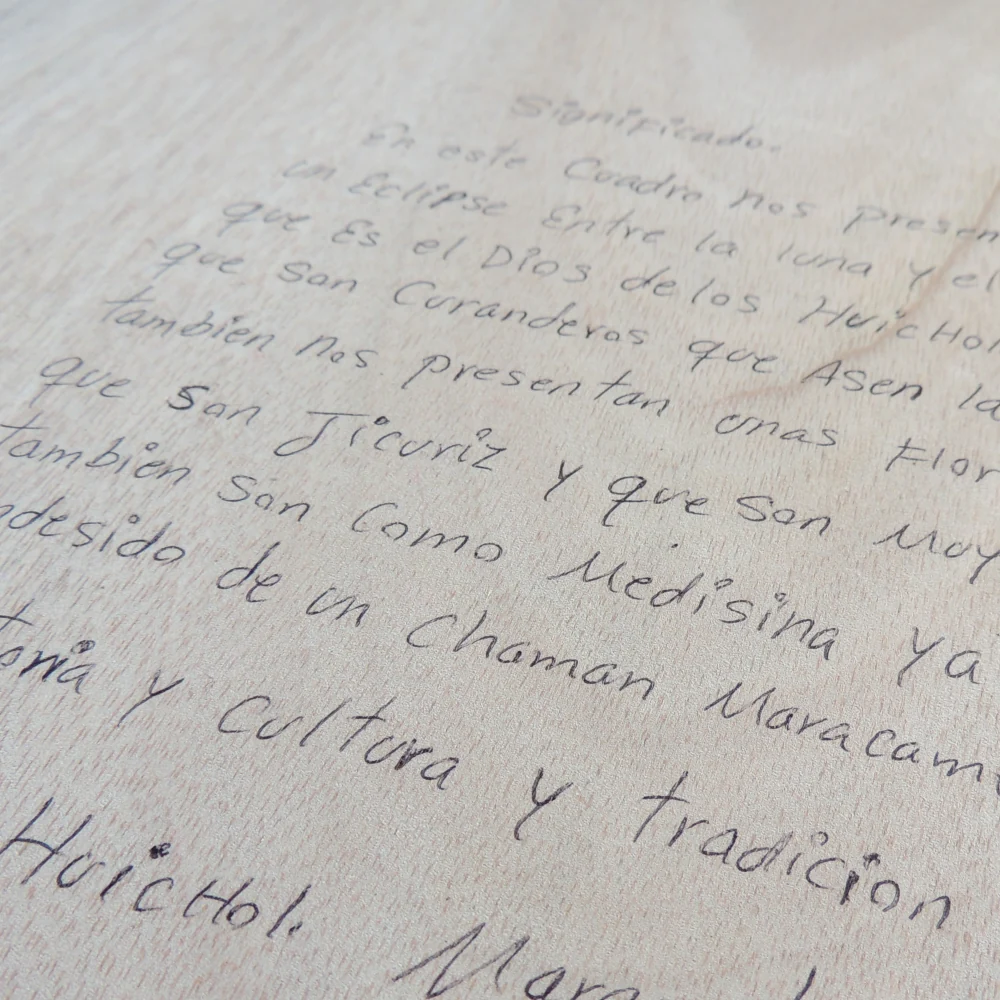 Significado.
En este Cuadro nos presen
un Eclipse Entre la luna y el
que Es el Dios de los HuicHol
que son Curanderos que Asen la
tambien nos presentan unas Flor
que son Jicuriz y que son Muy
tambien son como Medisina ya
desido de un Chaman Maracam
toria y cultura y tradicion
HuicHol. Mara